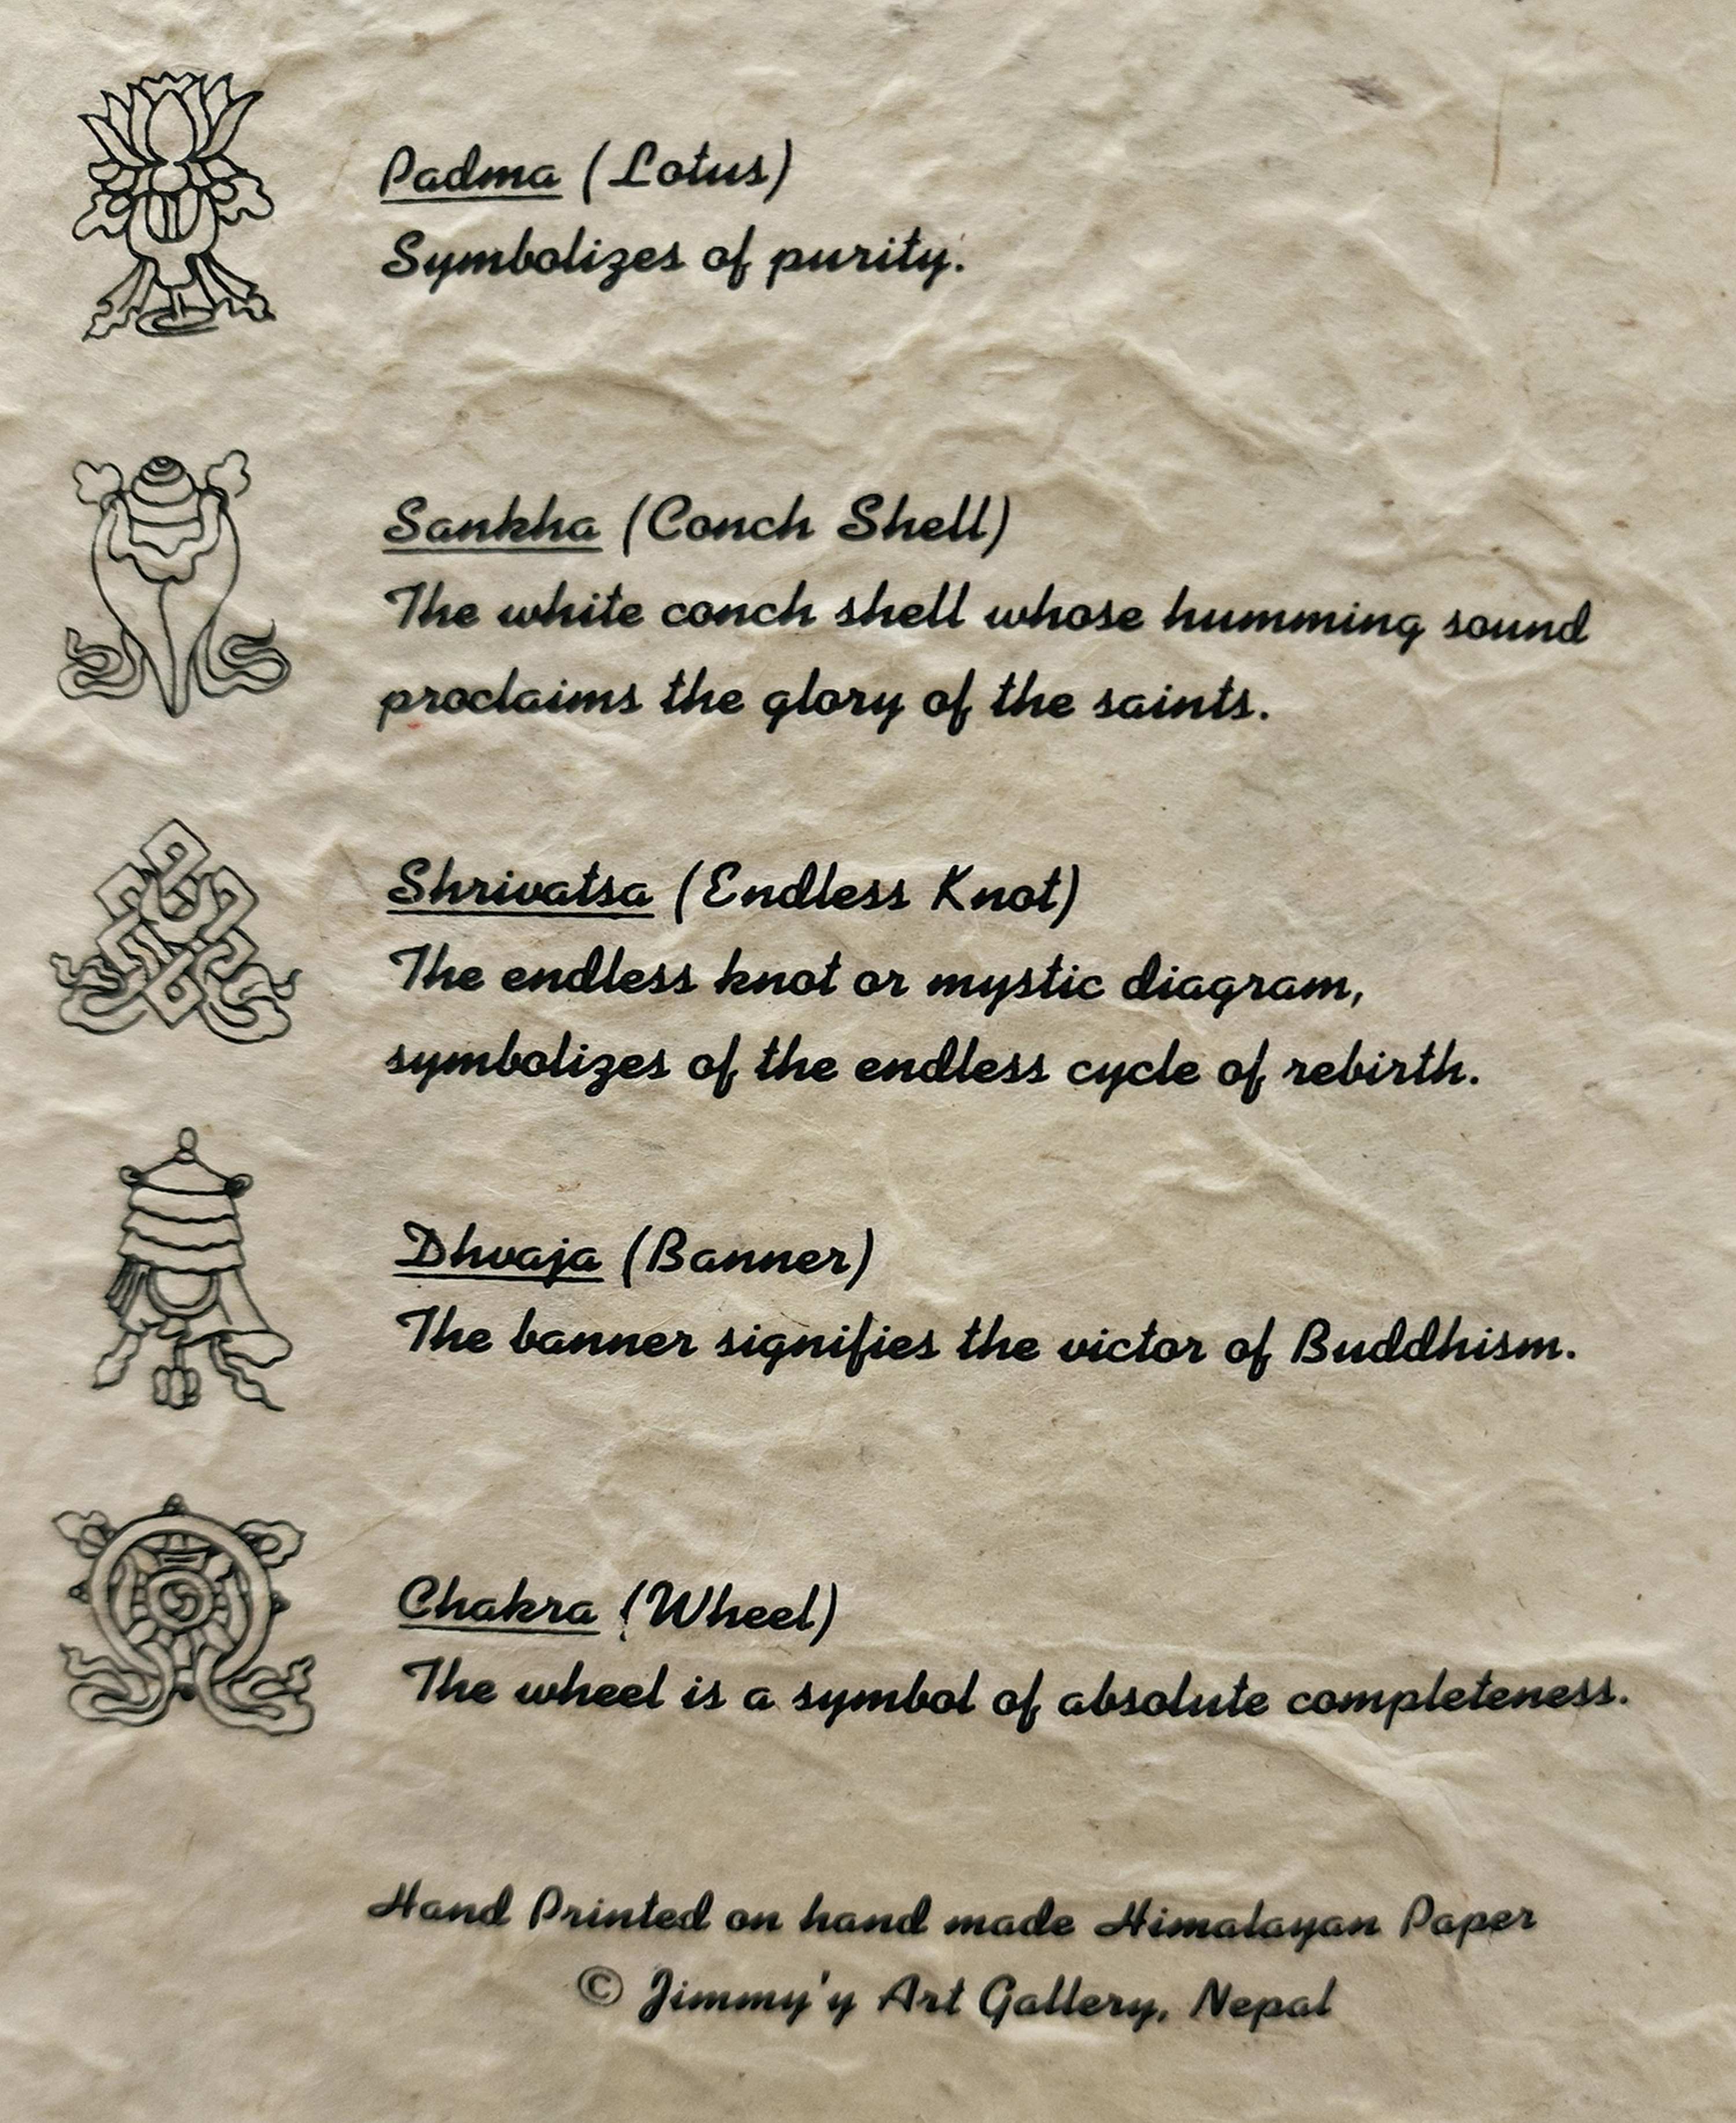 Padma (Lotus)
Symbolizes of purity.
Sankha (Conch Shell)
The white conch shell whose humming sound
proclaims the glory of the saints.
Shrivatsa (Endless Knot)
The endless knot or mystic diagram,
symbolizes of the endless cycle of rebirth.
Dhvaja (Banner)
The banner signifies the victor of Buddhism.
Chakra (Wheel)
The wheel is a symbol of absolute completeness.
Hand Printed on hand made Himalayan Paper
© Jimmy'y Art Gallery, Nepal